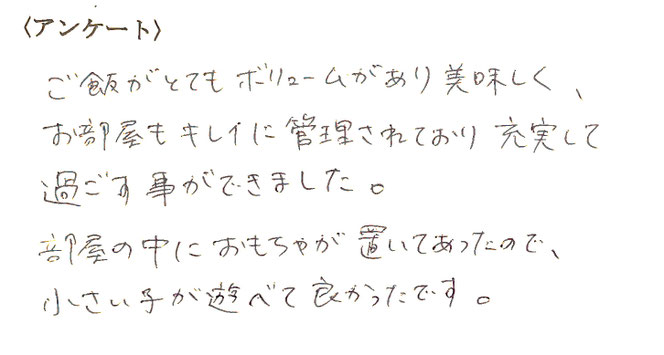 〈アンケート〉
ご飯がとてもボリュームがあり美味しく、
お部屋もキレイに管理されており充実して
過ごす事ができました。
部屋の中におもちゃが置いてあったので、
小さい子が遊べて良かったです。